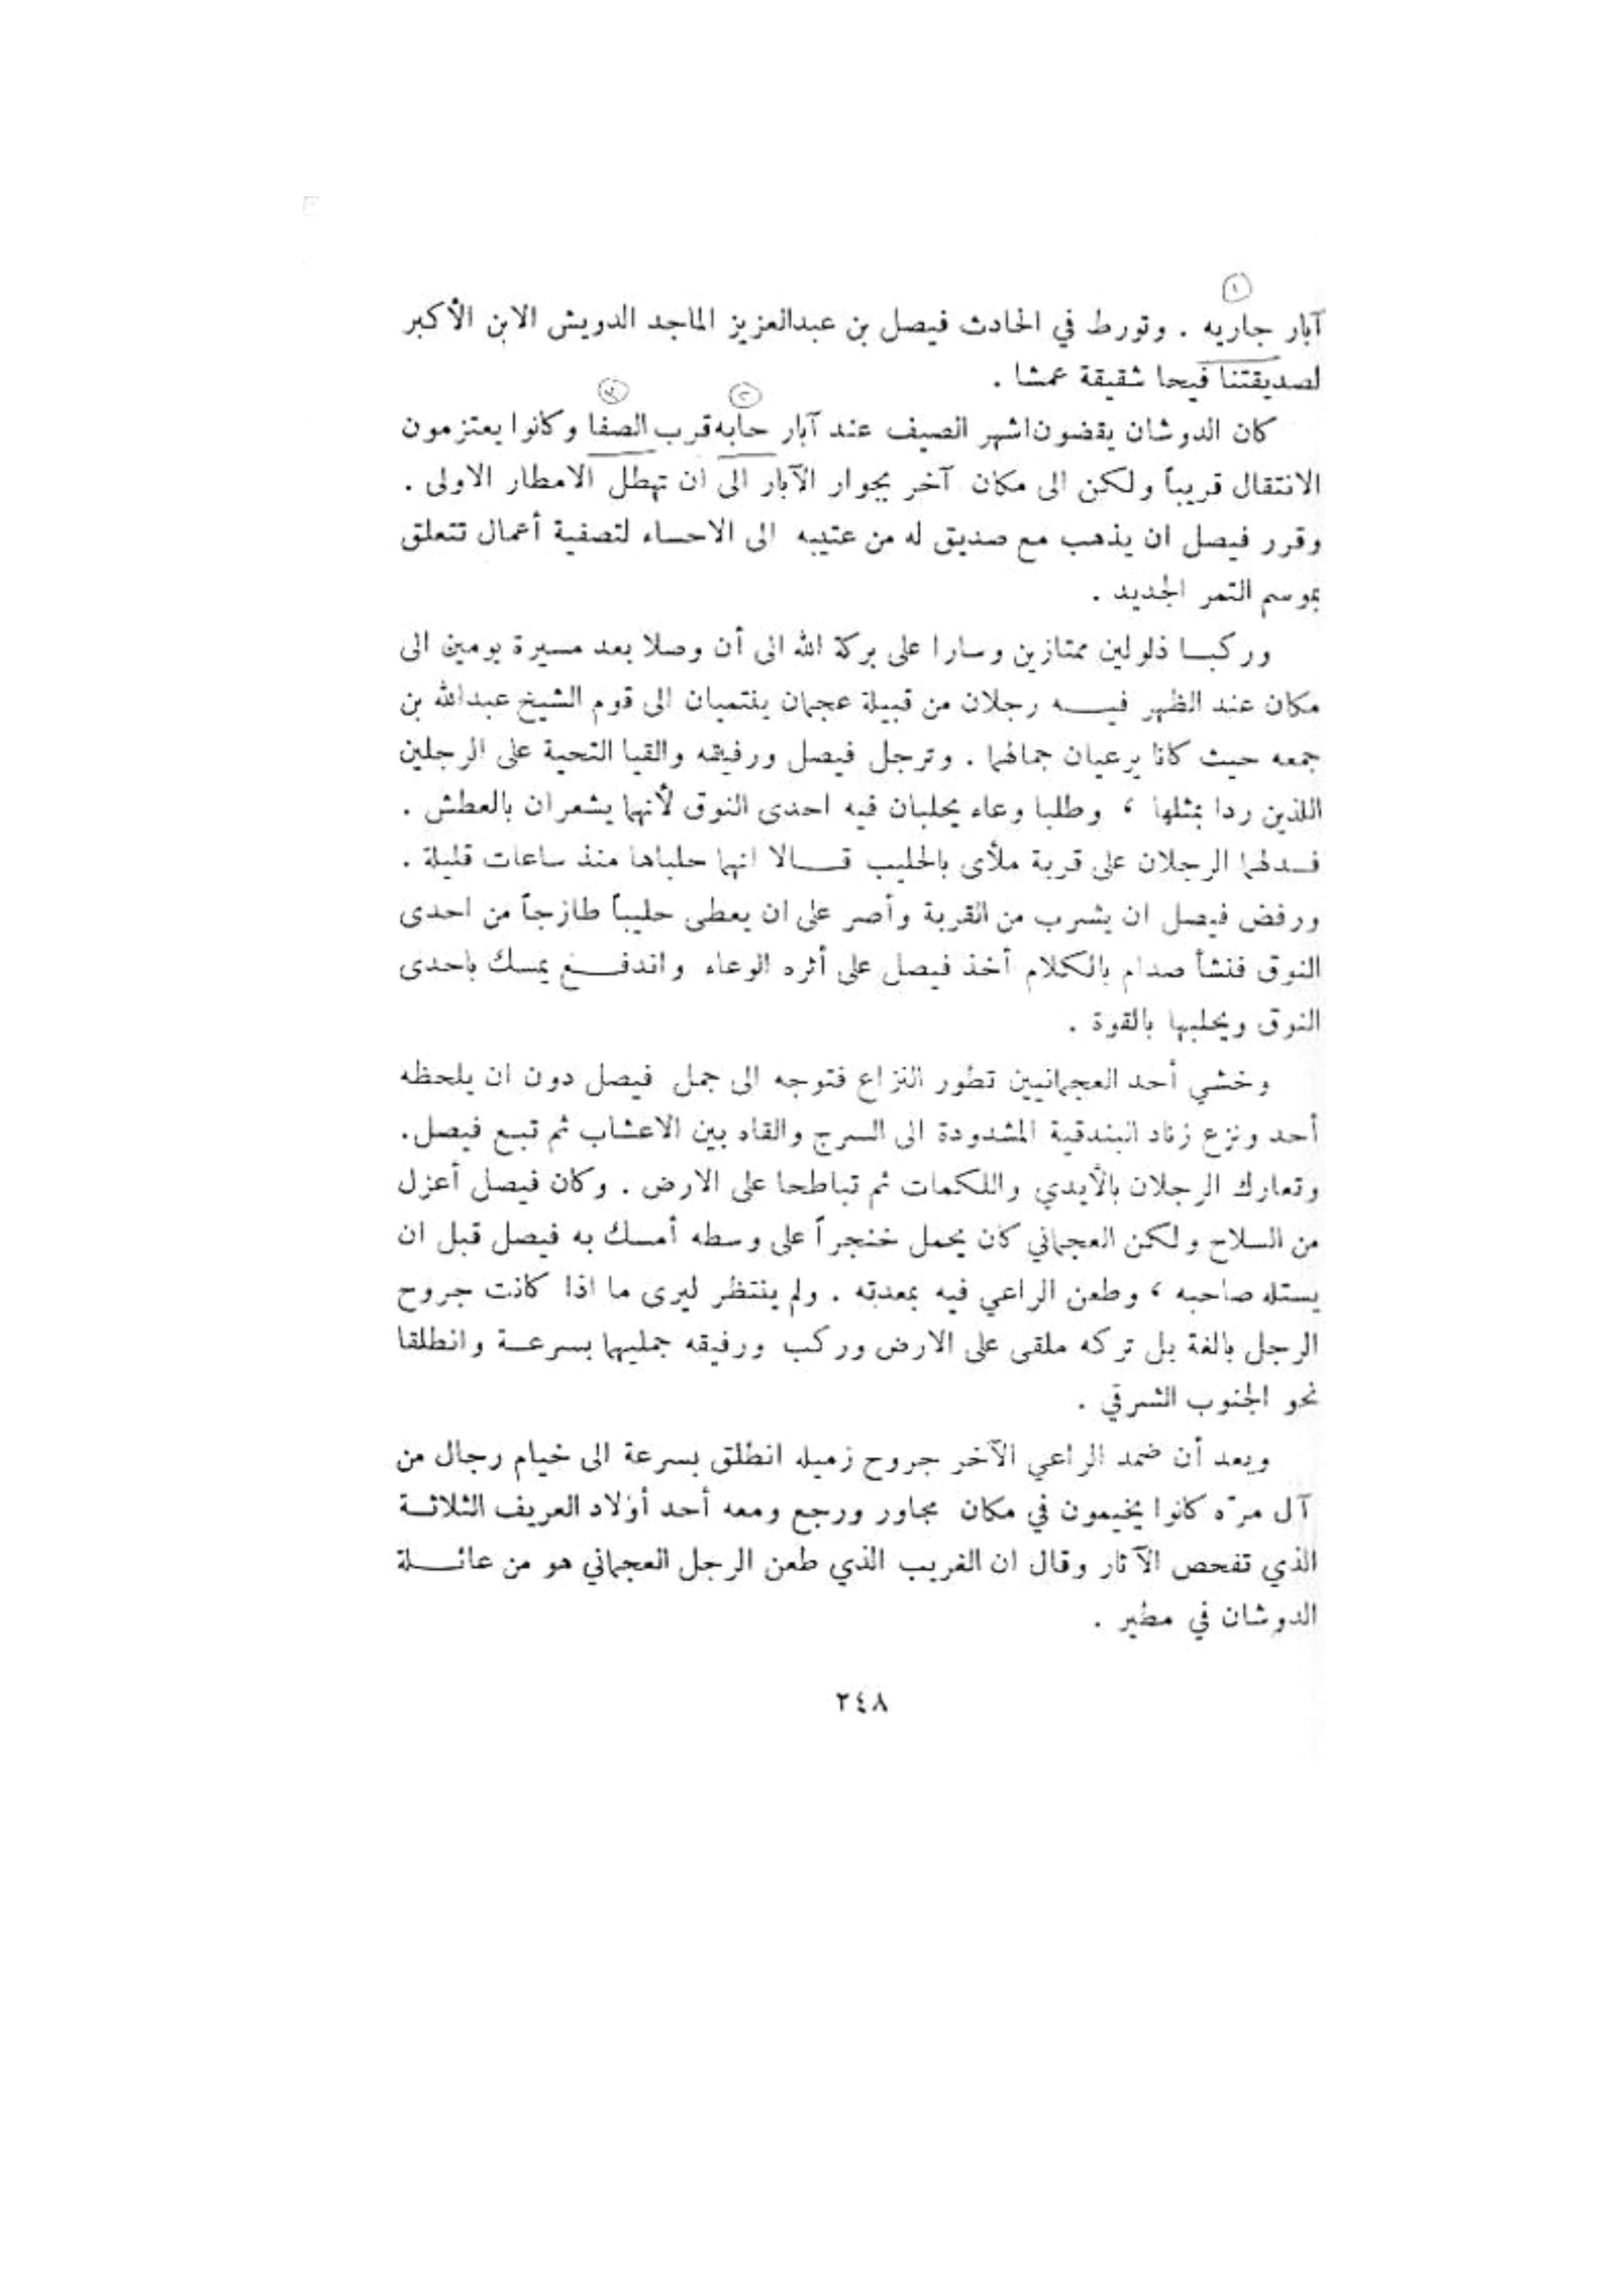 ١
آبار جاريه . وتورط في الحادث فيصل بن عبدالعزيز الماجد الدويش الابن الأكبر
لصديقتنا فيحا شقيقة عمشا .
كان الدوشان يقضون اشهر الصيف عند آبار حابه قرب الصفا وكانوا يعتزمون
الانتقال قريباً ولكن الى مكان آخر بجوار الآبار الى ان تهطل الامطار الاولى .
وقرر فيصل ان يذهب مع صديق له من عتيبه الى الاحساء لتصفية أعمال تتعلق
بموسم التمر الجديد .
وركبا ذلولين ممتازين وسارا على بركة الله الى أن وصلا بعد مسيرة يومين الى
مكان عند الظهر فيه رجلان من قبيلة عجمان ينتميان الى قوم الشيخ عبدالله بن
جمعه حيث كانا يرعيان جمالهما . وترجل فيصل ورفيقه والقيا التحية على الرجلين
اللذين ردا بمثلها ، وطلبا وعاء يحلبان فيه احدى النوق لأنهما يشعران بالعطش .
فدلهما الرجلان على قربة ملأى بالحليب قالا انهما حلباها منذ ساعات قليلة .
ورفض فيصل ان يشرب من القربة وأصر على ان يعطى حليباً طازجاً من احدى
النوق فنشأ صدام بالكلام أخذ فيصل على أثره الوعاء واندفع يمسك باحدى
النوق ويحلبها بالقوة .
وخشي أحد العجمانيين تطور النزاع فتوجه الى جمل فيصل دون ان يلحظه
أحد ونزع زناد البندقية المشدودة الى السرج والقاه بين الاعشاب ثم تبع فيصل.
وتعارك الرجلان بالأيدي واللكمات ثم تباطحا على الارض . وكان فيصل أعزل
من السلاح ولكن العجماني كان يحمل خنجراً على وسطه أمسك به فيصل قبل ان
يستله صاحبه ، وطعن الراعي فيه بمعدته . ولم ينتظر ليرى ما اذا كانت جروح
الرجل بالغة بل تركه ملقى على الارض وركب ورفيقه جمليهما بسرعة وانطلقا
نحو الجنوب الشرقي .
وبعد أن ضمد الراعي الآخر جروح زميله انطلق بسرعة الى خيام رجال من
آل مرّه كانوا يخيمون في مكان مجاور ورجع ومعه أحد أولاد العريف الثلاثة
الذي تفحص الآثار وقال ان الغريب الذي طعن الرجل العجماني هو من عائلة
الدوشان في مطير .
٢٤٨